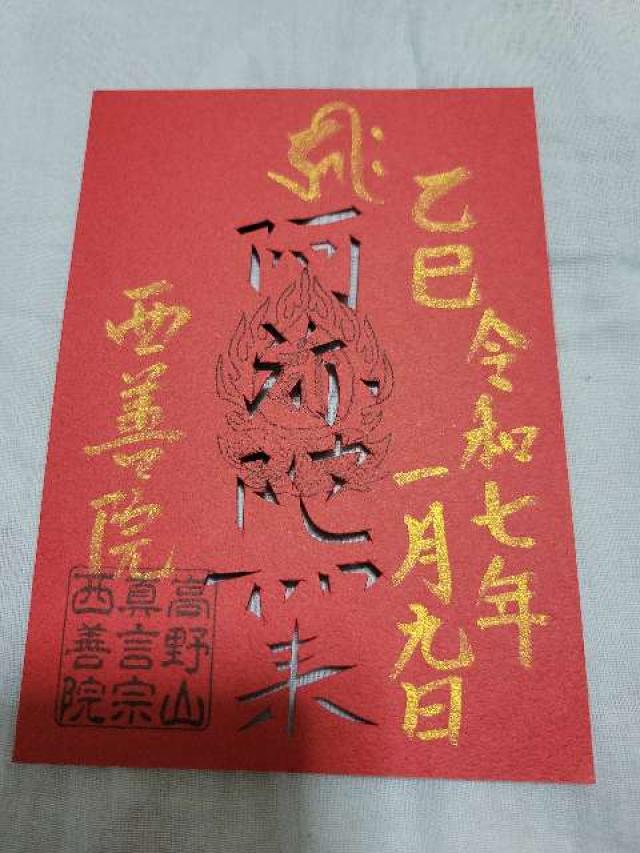 乙巳
令和七年
一月九日
阿弥陀如来
西善院
高野山
真言宗
西善院